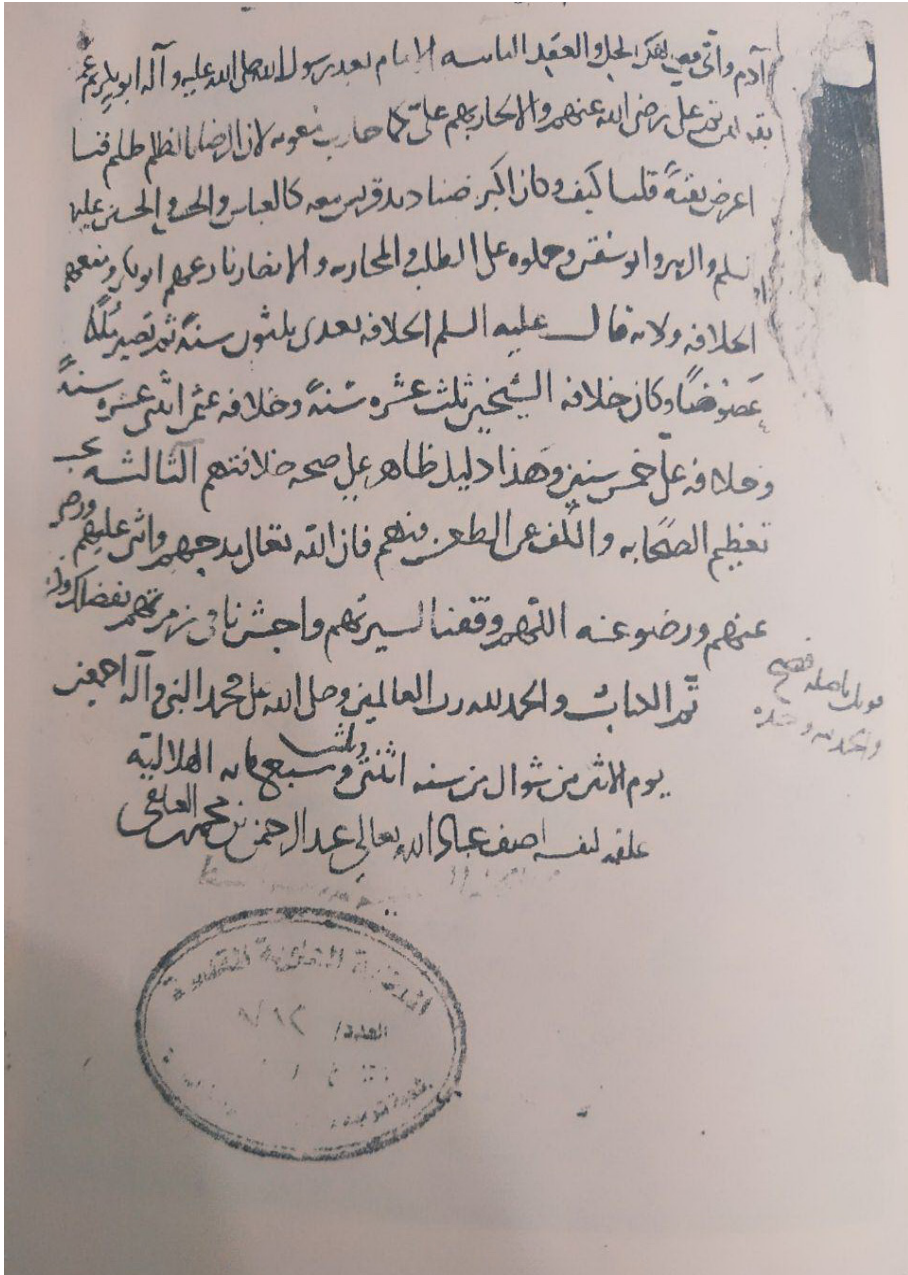 آدم واتى لفكر الحل والعقد الثالثه الامام بعد رسول الله صلى الله عليه وآله ابو بكر ثم عمر
على رضى الله عنهم والا لحاربهم على كما حارب معويه لان الرضا بالظلم ظلم
اعرض تقيةً قلنا كيف وكان اكبر صناديد قريش معه كالعباس والحسن والحسين عليهما
السلم والزبير وابو سفين وحملوه على الطلب والمحاربه والانصار نازعهم ابو بكر ومنعهم
الخلافه ولانه قال عليه السلم الخلافه بعدى ثلثون سنةً ثم تصير مُلكًا
عَضوضًا وكان خلافه الشيخين ثلث عشره سَنةً وخلافه عثمن اثنتى عشره سنةً
وخلافه على خمس سنين وهذا دليل ظاهر على صحه خلافتهم الثالثه يجب
تعظيم الصحابه والكف عن الطعن فيهم فان الله تعالى مدحهم واثنى عليهم ورضى
عنهم ورضو عنه اللهم وفقنا لسيرتهم واحشرنا فى زمرتهم بفضلك
تم الكتاب والحمد لله رب العالمين وصلى الله على محمد النبى وآله اجمعين
قوبل باصله فصح
والحمد لله وحده
يوم الاثنين من شوال من سنه اثنتى وثلثين وسبع مايه الهلاليه
علقه لنفسه اضعف عباد الله تعالى عبد الرحمن بن محمد
العدد